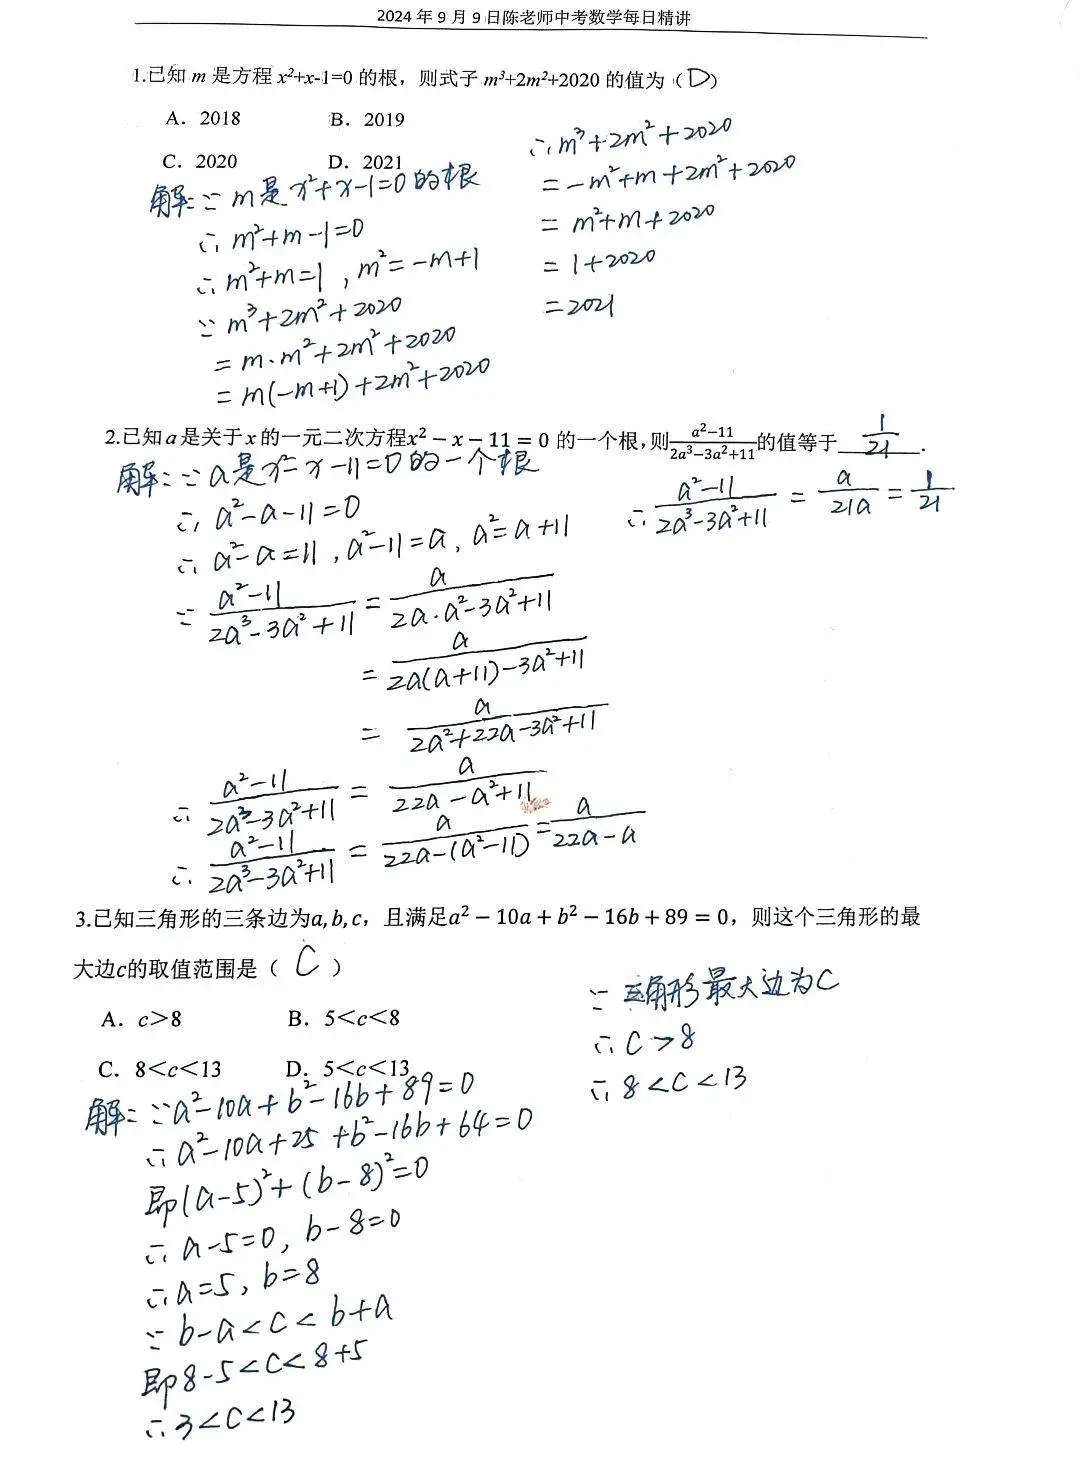 2024 年 9 月 9 日陈老师中考数学每日精讲
1.已知 m 是方程 x²+x-1=0 的根，则式子 m³+2m²+2020 的值为（D）
A．2018 B．2019
C．2020 D．2021
解：∵ m是x²+x-1=0的根
∴ m²+m-1=0
∴ m²+m=1，m²=-m+1
∵ m³+2m²+2020
= m·m²+2m²+2020
= m(-m+1)+2m²+2020
∴ m³+2m²+2020
= -m²+m+2m²+2020
= m²+m+2020
= 1+2020
= 2021
2.已知a是关于x的一元二次方程x² − x − 11 = 0 的一个根,则(a²−11)/(2a³−3a²+11)的值等于 1/21 .
解：∵ a是x²-x-11=0的一个根
∴ a²-a-11=0
∴ a²-a=11，a²-11=a，a²=a+11
∵ (a²-11)/(2a³-3a²+11) = a/(2a·a²-3a²+11)
= a/(2a(a+11)-3a²+11)
= a/(2a²+22a-3a²+11)
∴ (a²-11)/(2a³-3a²+11) = a/(22a-a²+11)
∴ (a²-11)/(2a³-3a²+11) = a/(22a-(a²-11)) = a/(22a-a)
∴ (a²-11)/(2a³-3a²+11) = a/(21a) = 1/21
3.已知三角形的三条边为a, b, c，且满足a² − 10a + b² − 16b + 89 = 0，则这个三角形的最
大边c的取值范围是（ C ）
A．c＞8 B．5＜c＜8
C．8＜c＜13 D．5＜c＜13
解：∵a²-10a+b²-16b+89=0
∴ a²-10a+25+b²-16b+64=0
即(a-5)²+(b-8)²=0
∴ a-5=0，b-8=0
∴ a=5，b=8
∵ b-a<c<b+a
即8-5<c<8+5
∴ 3<c<13
∵ 三角形最大边为C
∴ C>8
∴ 8<C<13